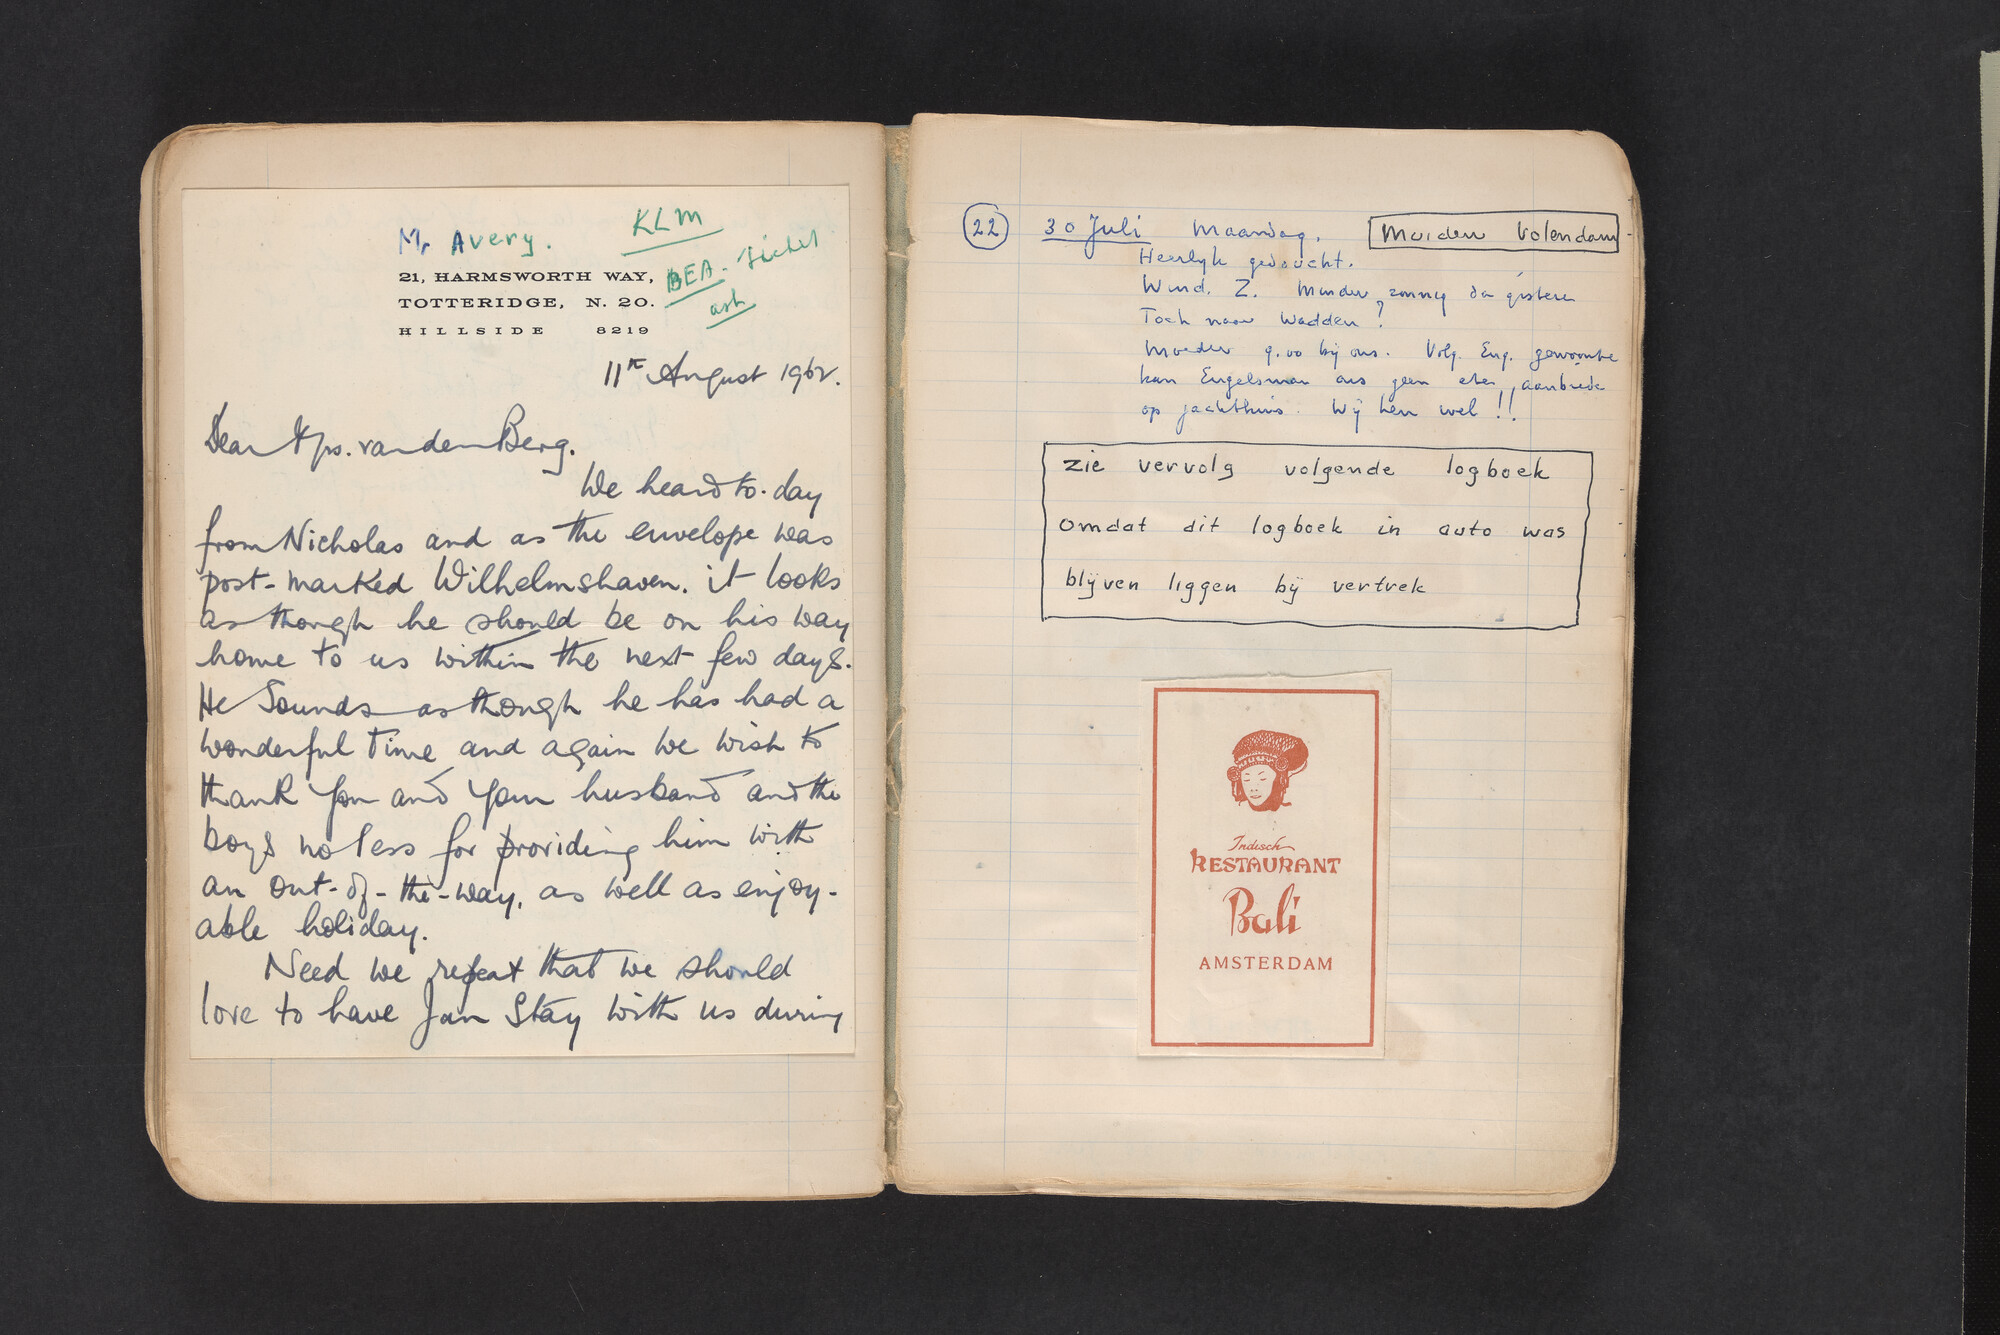 Mr Avery.
KLM
BEA - ticket
ash
21, HARMSWORTH WAY,
TOTTERIDGE, N. 20.
HILLSIDE 8219
11th August 1962.
Dear Mrs. van den Berg.
We heard to-day
from Nicholas and as the envelope was
post-marked Wilhelmshaven. it looks
as though he should be on his way
home to us within the next few days.
He Sounds as though he has had a
wonderful time and again we wish to
thank You and Your husband and the
boys no less for providing him with
an out-of-the-way, as well as enjoy-
able holiday.
Need we repeat that we should
love to have Jan Stay with us during
22 30 Juli Maandag. Muiden Volendam
Heerlijk gedoucht.
Wind. Z. Minder zonnig dan gisteren
Toch naar Wadden?
Moeder 9.00 bij ons. Volg. Eng. gewoonte
kan Engelsman ons geen eten aanbieden
op jachthuis. Wij hen wel!!
zie vervolg volgende logboek
omdat dit logboek in auto was
blijven liggen bij vertrek
Indisch
RESTAURANT
Bali
AMSTERDAM